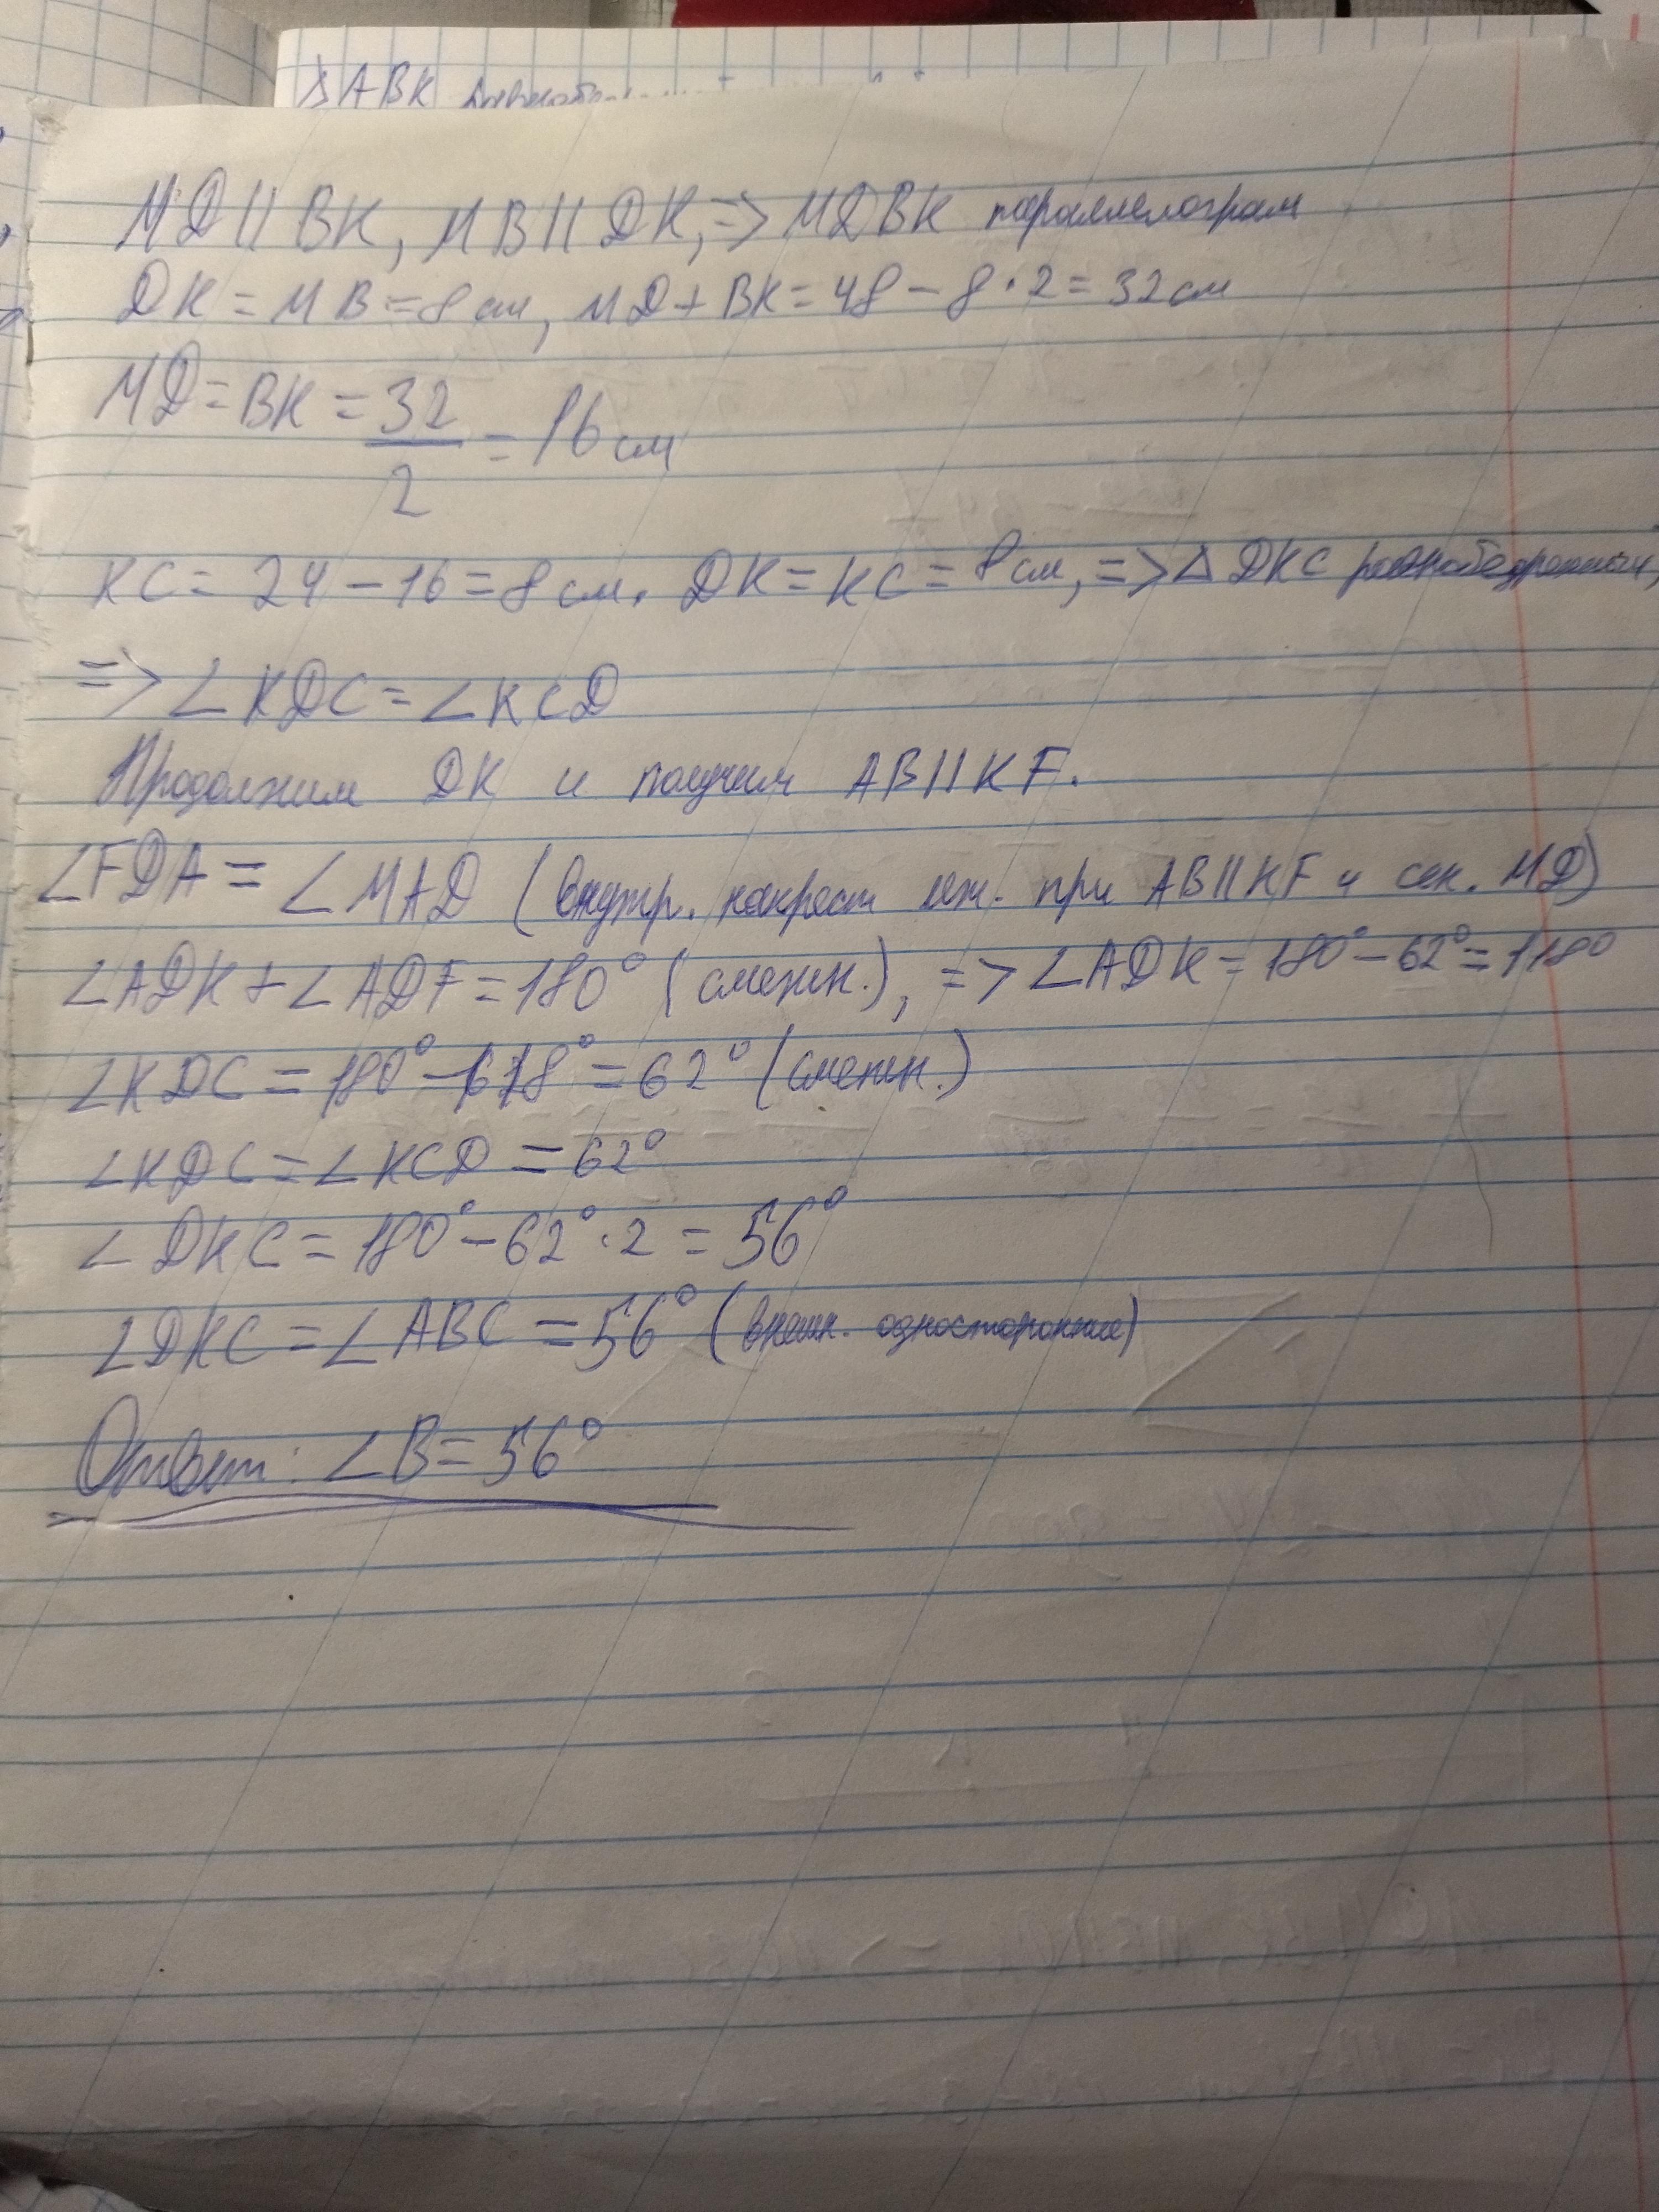 △ABK
MD || BK, MB || DK, => MDBK параллелограм
DK = MB = 8 см, MD + BK = 48 - 8 · 2 = 32 см
MD = BK = 32/2 = 16 см
KC = 24 - 16 = 8 см. DK = KC = 8 см, => △ DKC равнобедренный,
=> ∠KDC = ∠KCD
Продолжим DK и получим AB || KF.
∠FDA = ∠MAD (внутр. накрест леж. при AB || KF и сек. MD)
∠ADK + ∠ADF = 180° (смежн.), => ∠ADK = 180° - 62° = 118°
∠KDC = 180° - 118° = 62° (смежн.)
∠KDC = ∠KCD = 62°
∠DKC = 180° - 62° · 2 = 56°
∠DKC = ∠ABC = 56° (внешн. односторонние)
Ответ: ∠B = 56°